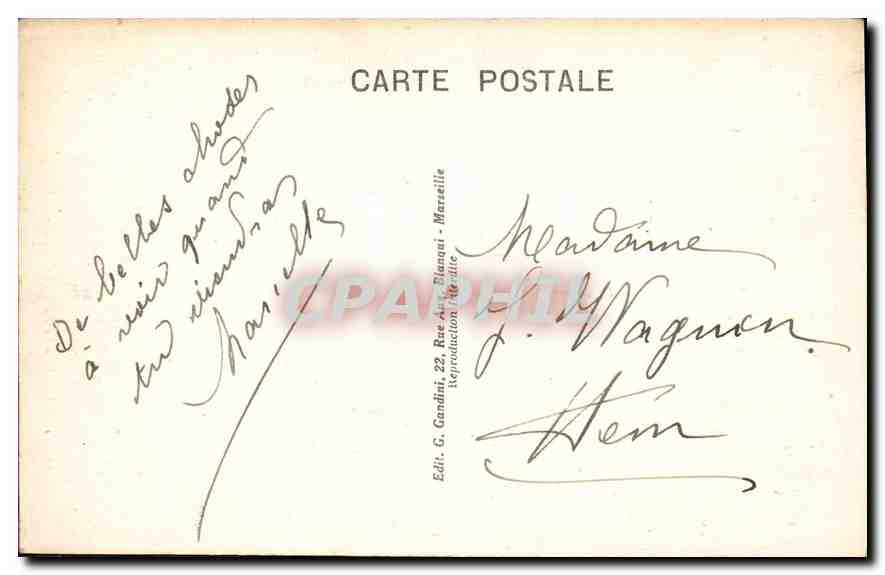 CARTE POSTALE
De belles choses
à voir quand
tu viendras
Marcelle
Edit. G. Gandini, 22, Rue Aug. Blanqui - Marseille
Reproduction interdite
CPAPHIL
Madame
J. Wagnon.
Hem